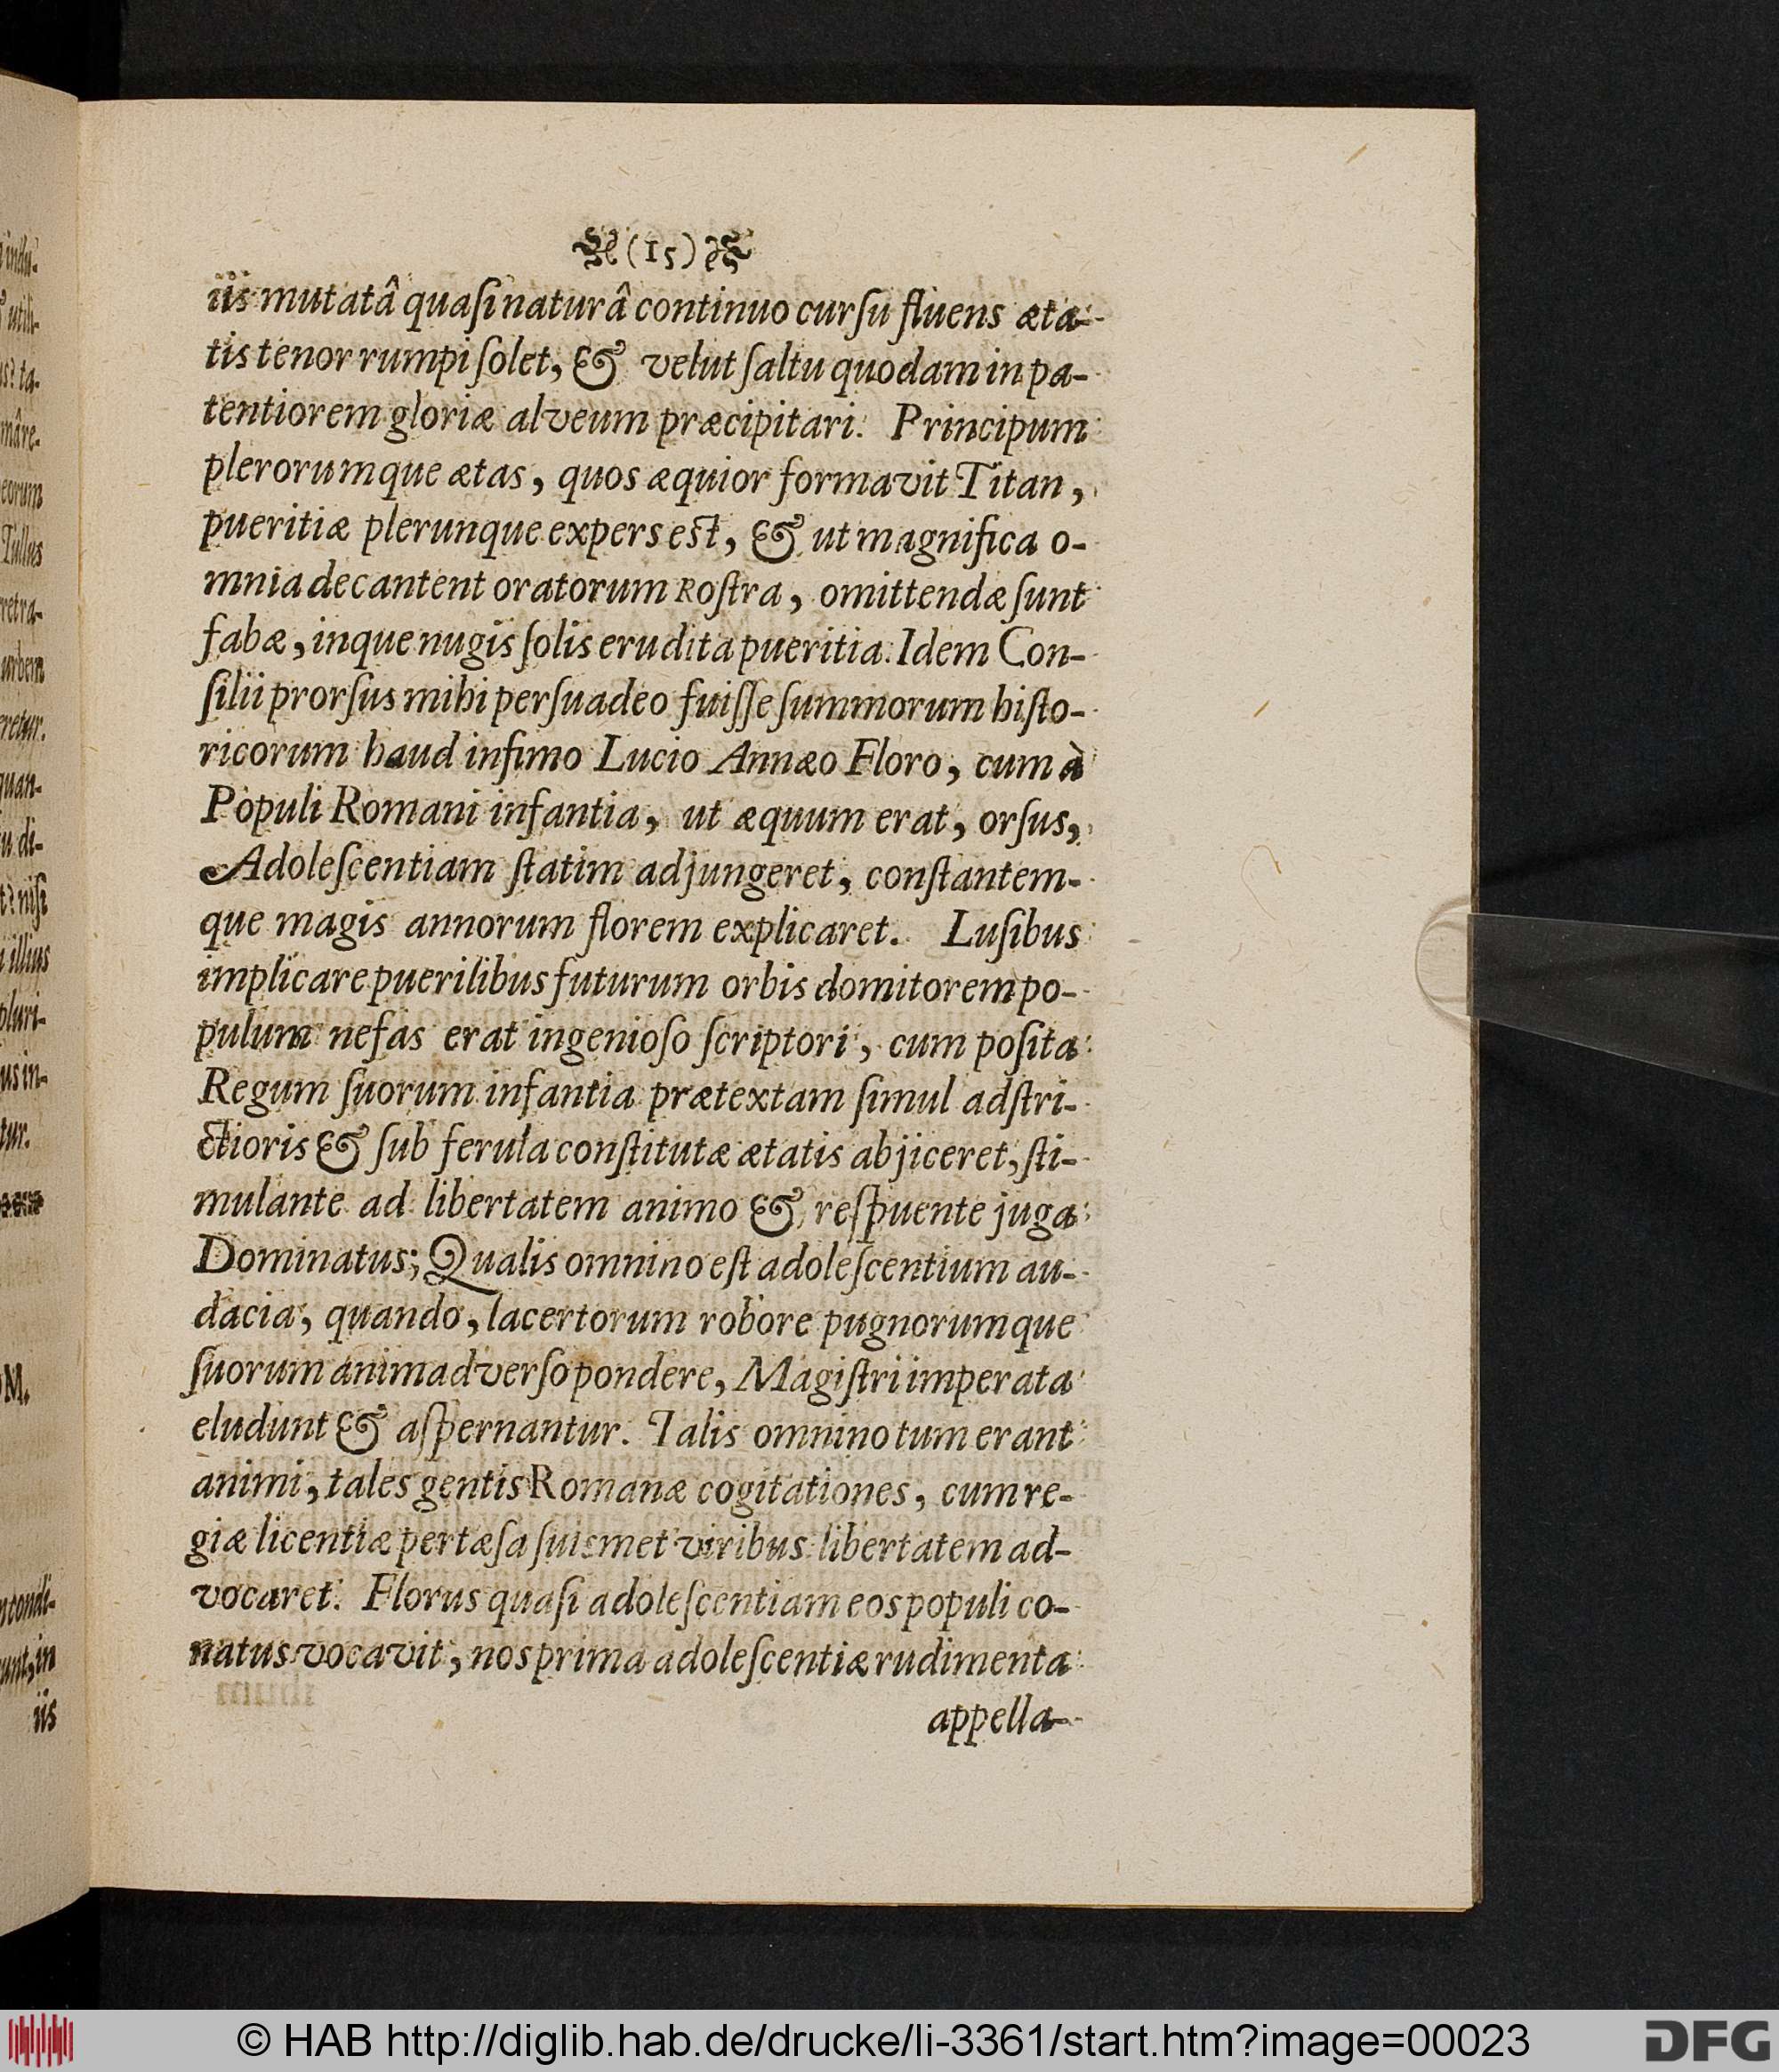 (15)
iis mutatâ quaſi naturâ continuo curſu fluens æta-
tis tenor rumpi ſolet, & velut ſaltu quodam in pa-
tentiorem gloriæ alveum præcipitari. Principum
plerorumque ætas, quos æquior formavit Titan,
pueritiæ plerunque expers eſt, & ut magnifica o-
mnia decantent oratorum Roſtra, omittendæ ſunt
fabæ, inque nugis ſolis erudita pueritia. Idem Con-
ſilii prorſus mihi perſuadeo fuiſſe ſummorum hiſto-
ricorum haud infimo Lucio Annæo Floro, cum à
Populi Romani infantia, ut æquum erat, orſus,
Adoleſcentiam ſtatim adjungeret, conſtantem-
que magis annorum florem explicaret. Luſibus
implicare puerilibus futurum orbis domitorem po-
pulum nefas erat ingenioſo ſcriptori, cum poſita
Regum ſuorum infantia prætextam ſimul adſtri-
ctioris & ſub ferula conſtitutæ ætatis abjiceret, ſti-
mulante ad libertatem animo & reſpuente juga
Dominatus; Qualis omnino eſt adoleſcentium au-
dacia, quando, lacertorum robore pugnorumque
ſuorum animadverſo pondere, Magiſtri imperata
eludunt & aſpernantur. Talis omnino tum erant
animi, tales gentis Romanæ cogitationes, cum re-
giæ licentiæ pertæſa ſuismet viribus libertatem ad-
vocaret. Florus quaſi adoleſcentiam eos populi co-
natus vocavit, nos prima adoleſcentiæ rudimenta
appella-
© HAB http://diglib.hab.de/drucke/li-3361/start.htm?image=00023
DFG